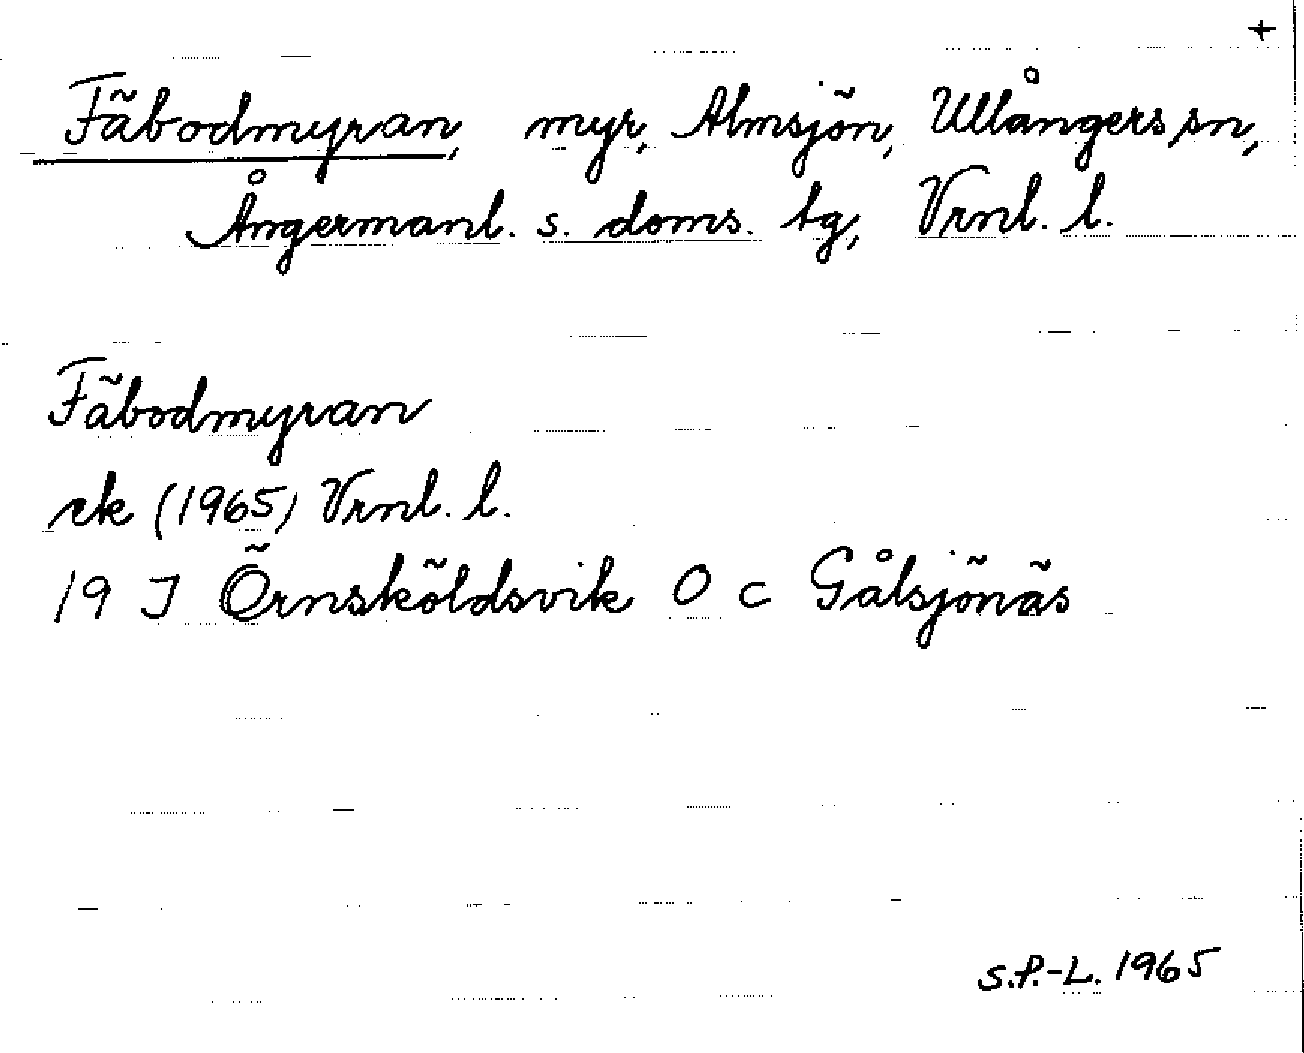 +
Fäbodmyran, myr, Almsjön, Ullångers sn,
Ångermanl. s. doms. tg, Vrnl. l.
Fäbodmyran
ek (1965) Vrnl. l.
19 J Örnsköldsvik 0 c Gålsjönäs
S.P.-L. 1965